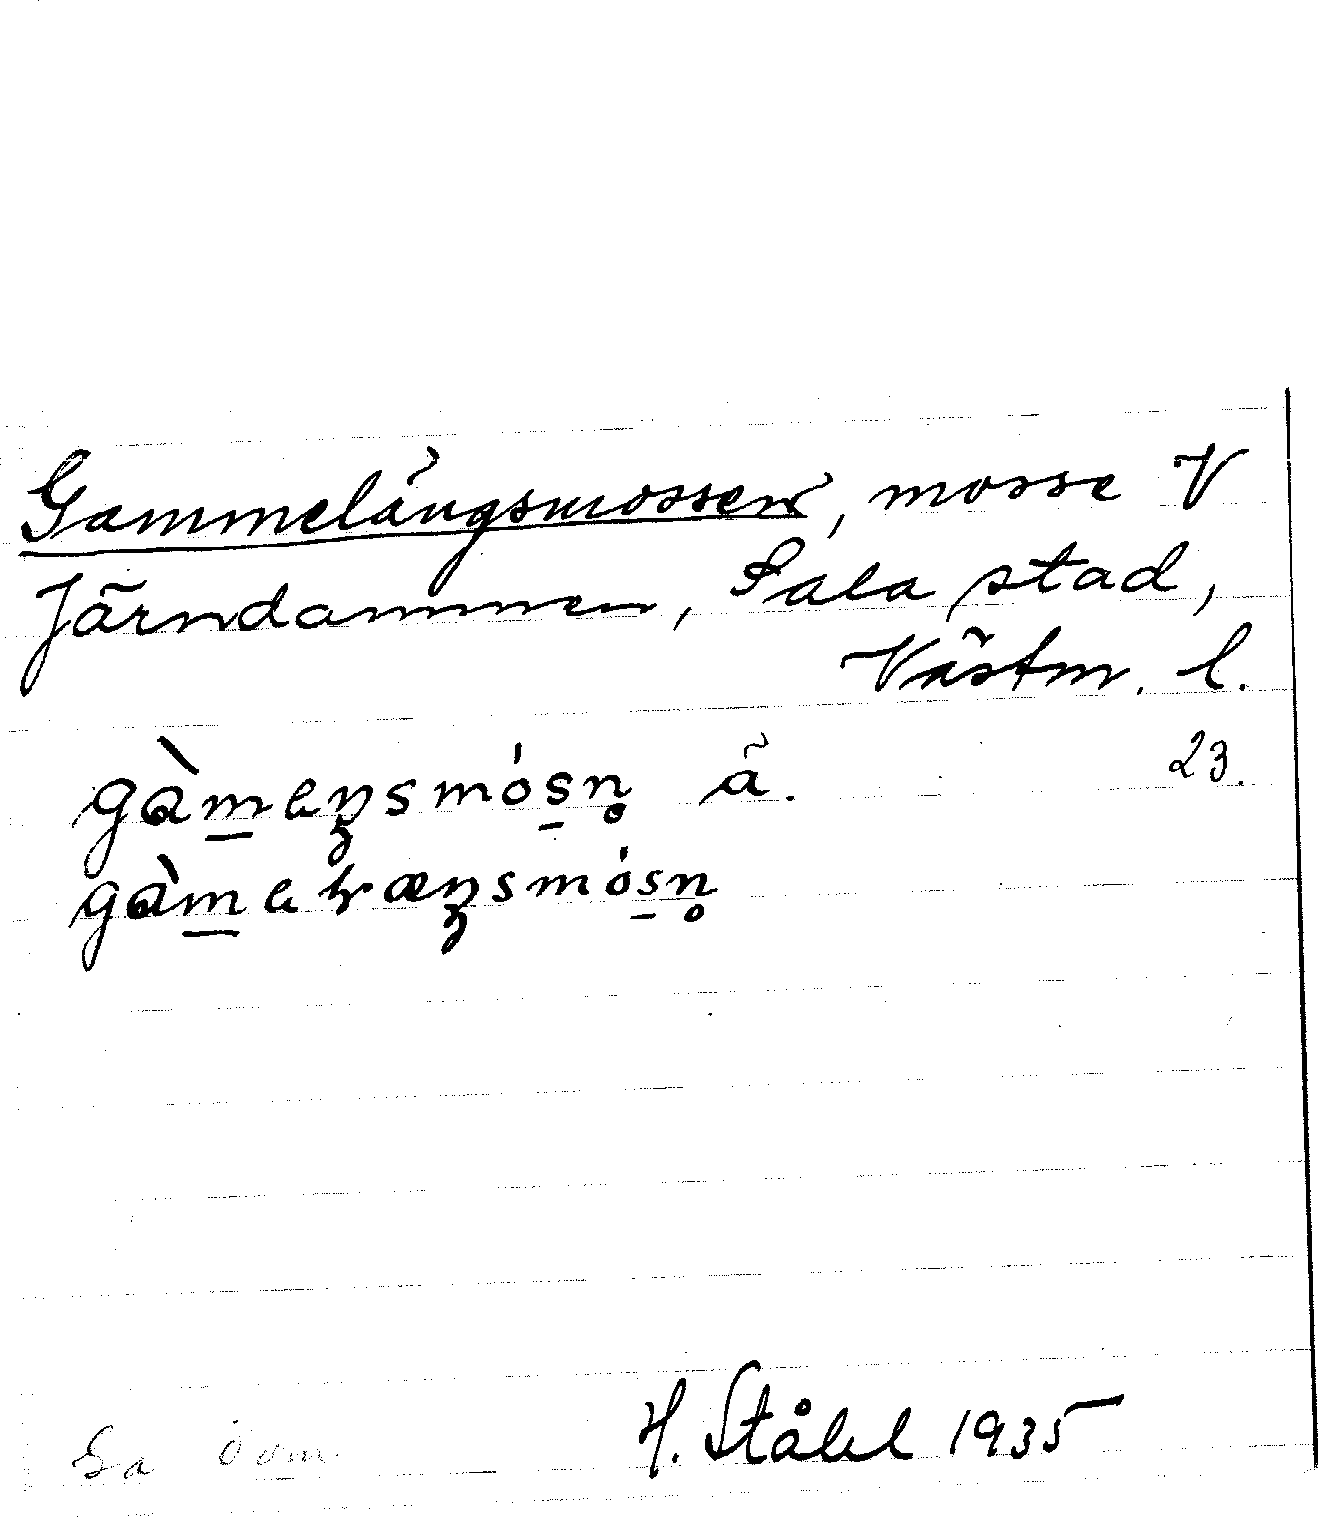 Gammelängsmossen, mosse V
Järndammen, Sala stad,
Västm. l.
gàm̲eŋsmós̲n̥ ä. 23.
gàm̲etræŋsmós̲n̥
H. Ståhl 1935